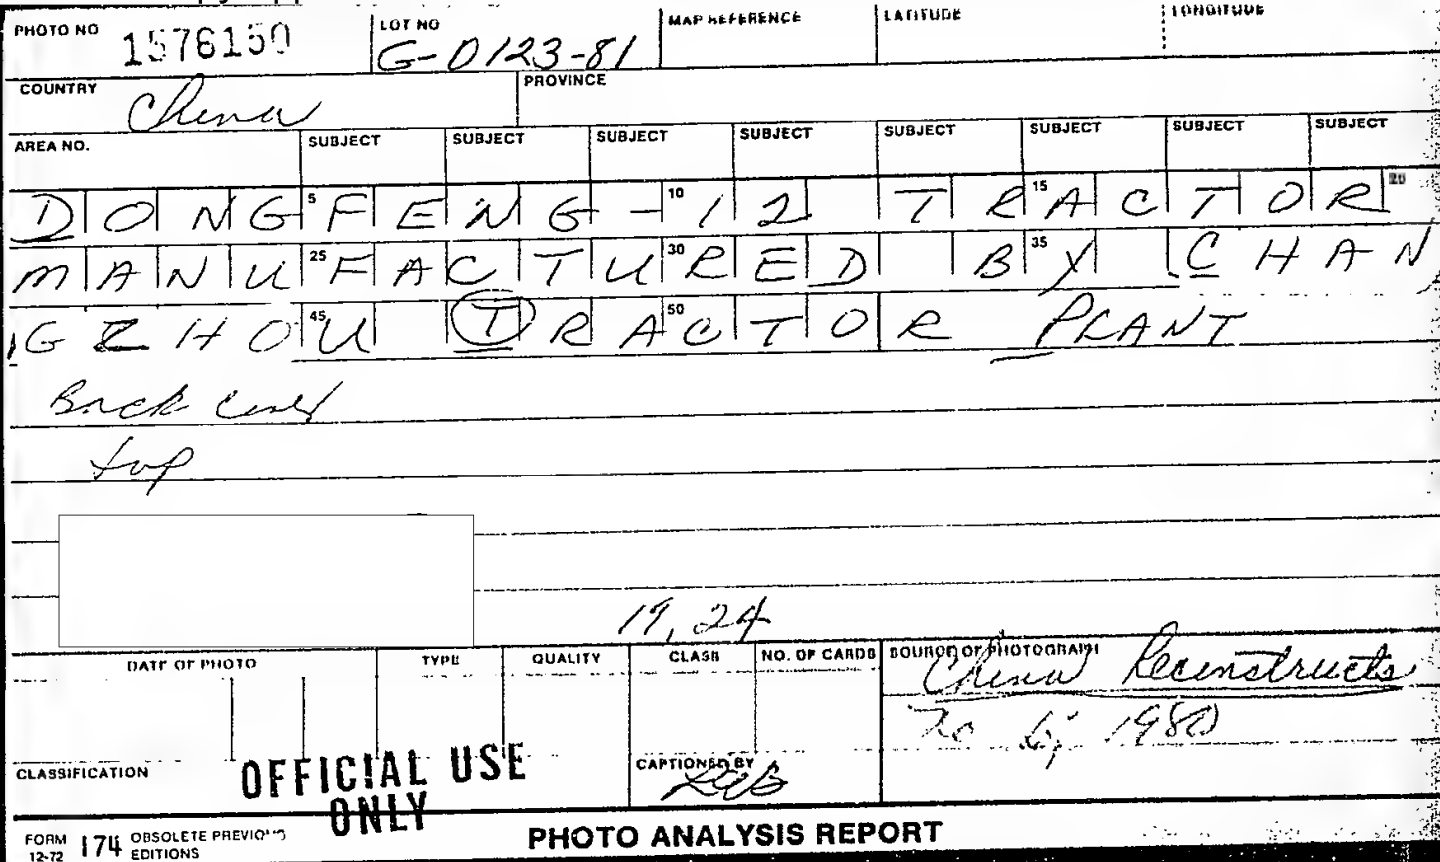 PHOTO NO 1576150 LOT NO G-D123-81 MAP REFERENCE LATITUDE LONGITUDE
COUNTRY China PROVINCE
AREA NO. SUBJECT SUBJECT SUBJECT SUBJECT SUBJECT SUBJECT SUBJECT SUBJECT
DONG 5 FENG- 10 12 TR 15 ACTOR 20
MANU 25 FACTU 30 RED B 35 Y CHAN
GZHO 45 U TRAC 50 TOR PLANT
Back
top
19, 24
DATE OF PHOTO TYPE QUALITY CLASS NO. OF CARDS SOURCE OF PHOTOGRAPH
China Reconstructs
No 1980
CLASSIFICATION OFFICIAL USE CAPTIONED BY
ONLY
FORM 174 OBSOLETE PREVIOUS PHOTO ANALYSIS REPORT
12-72 EDITIONS